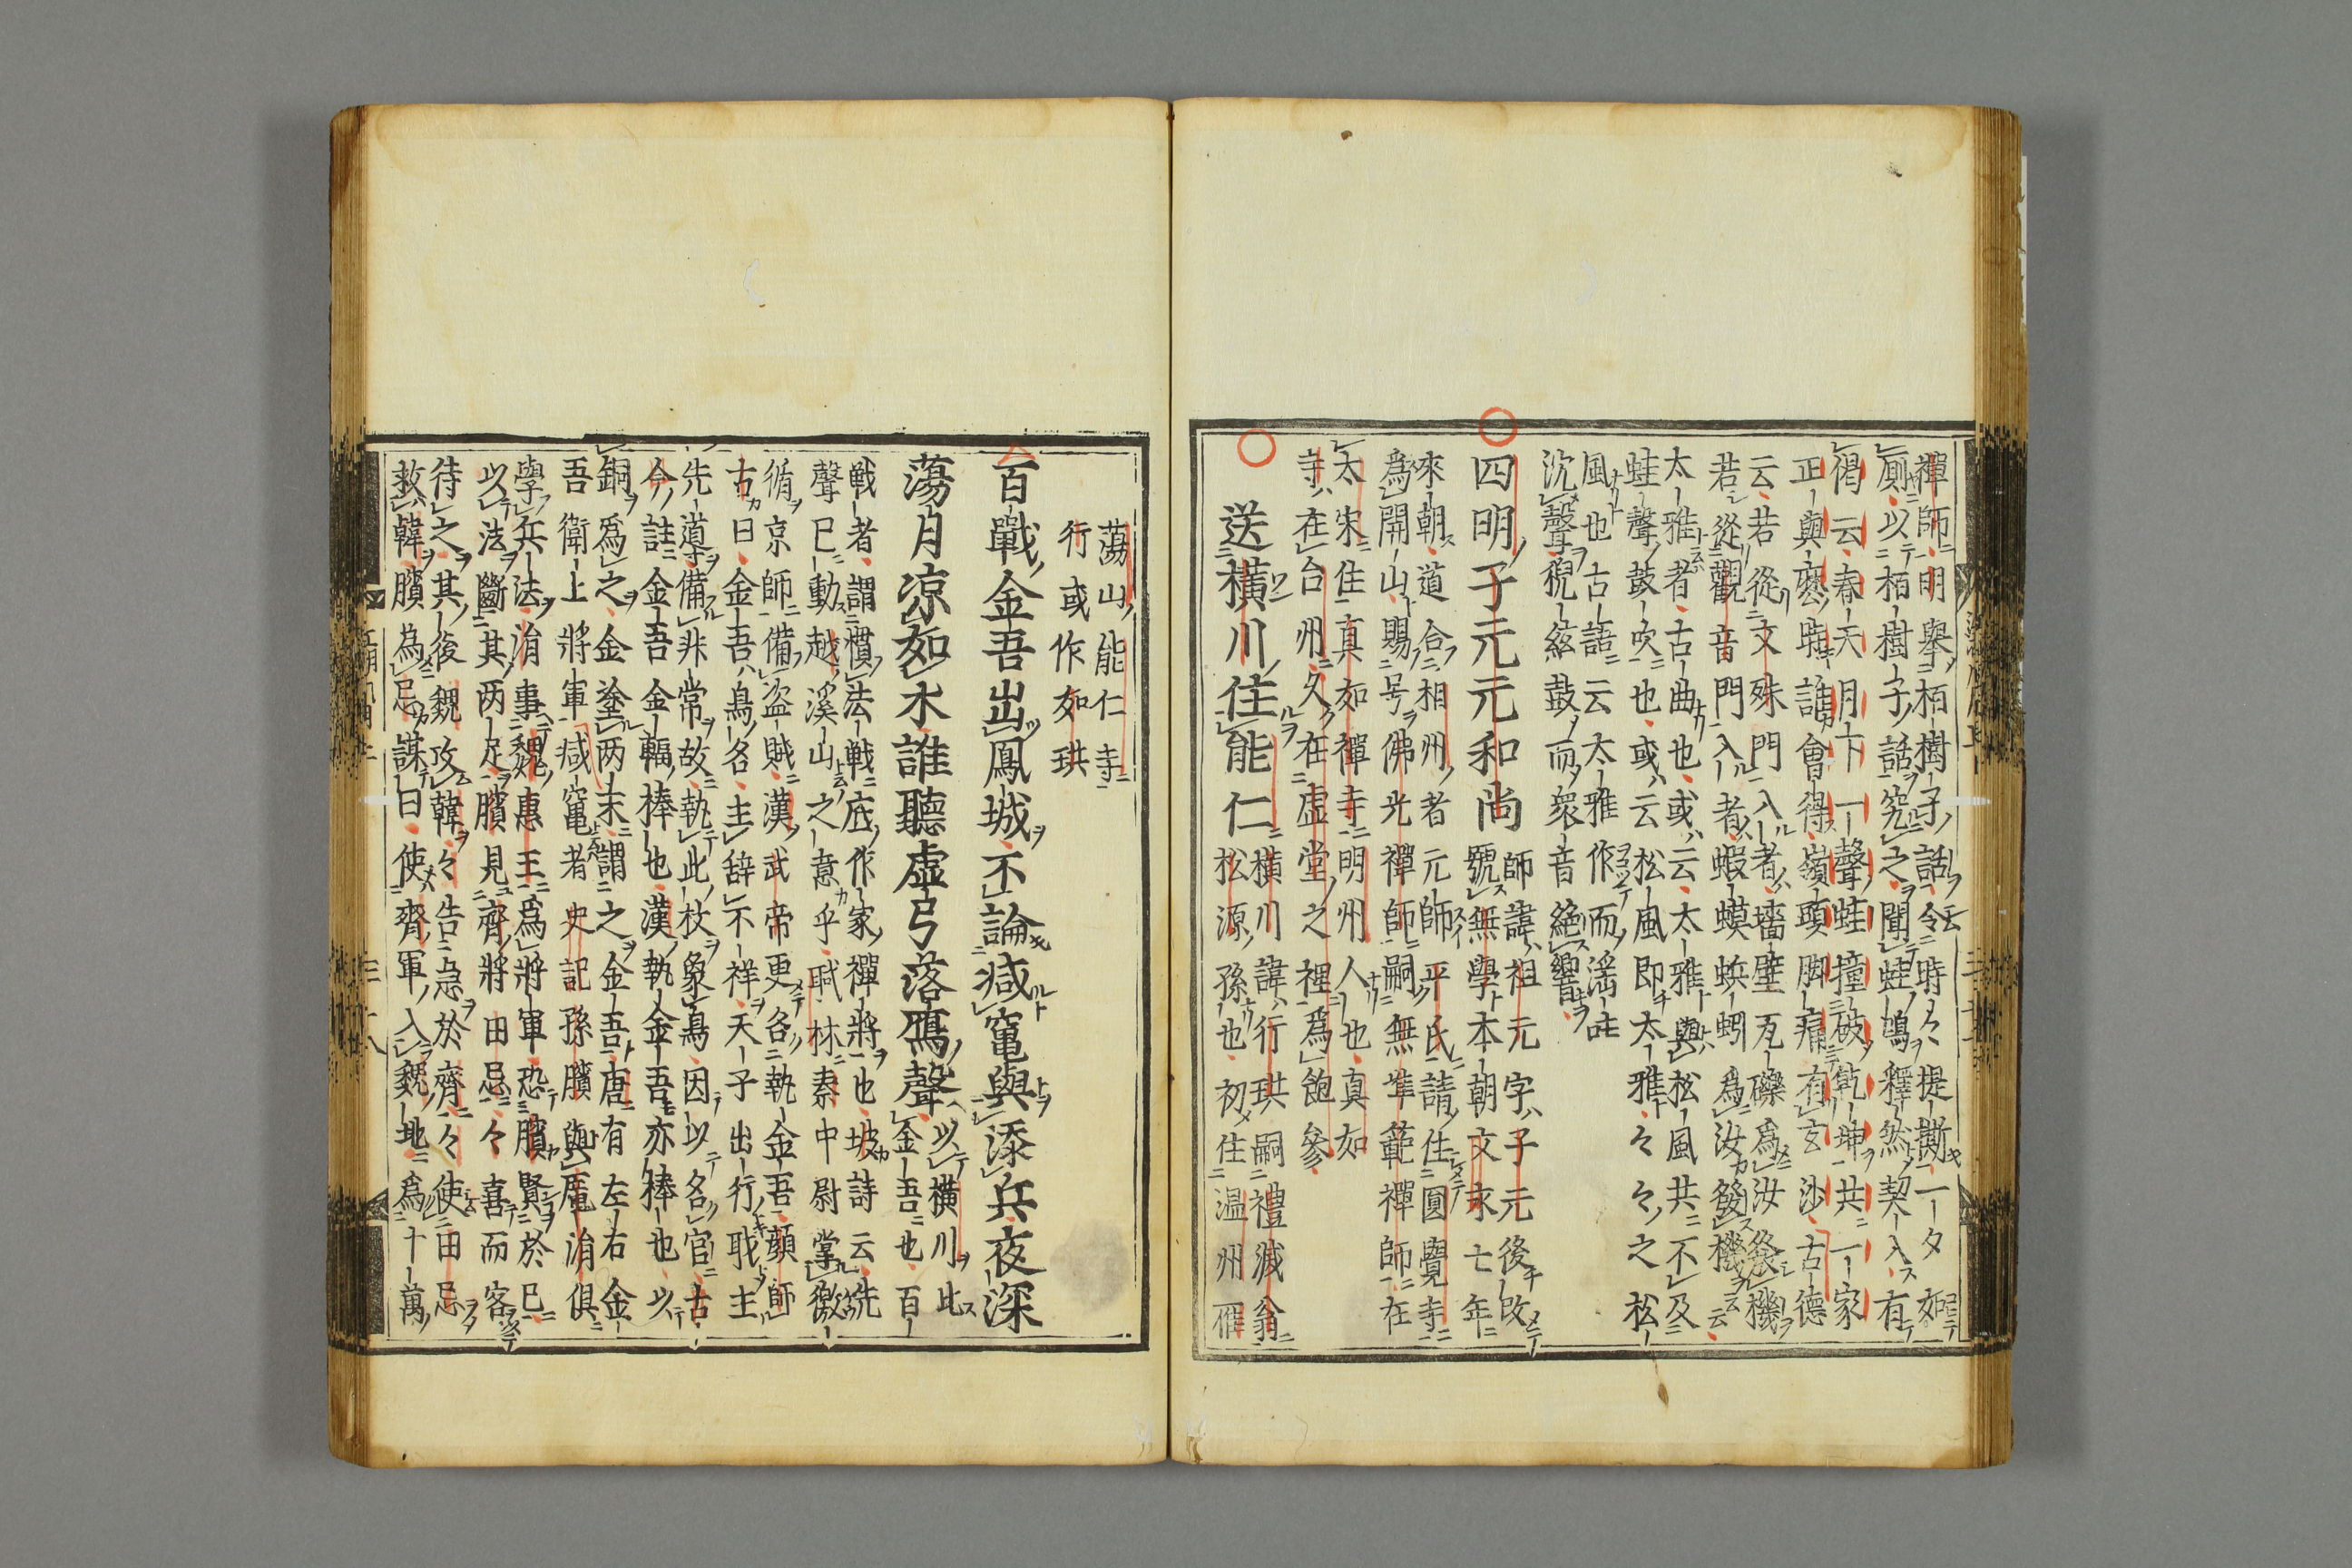 禪師明擧栢樹子話令時々提撕一夕如
厠以栢樹子話究之聞蛙鳴釋然契入有
偈云春天月下一聲蛙撞破乾坤共一家
正與麽時誰會得嶺頭脚痛有玄沙古德
云若從文殊門入者墻壁瓦礫爲汝發機
若從觀音門入者蝦蟆蚯蚓爲汝發機云
太雅者古曲也或云太雅與松風共不及
蛙聲鼓吹也或云松風即太雅々々之松
風也古語云太雅作而滛哇
沈聲猊絃鼓而衆音絶響
四明子元元和尚
師諱祖元字子元後改
號無學本朝文永七年
來朝道合相州者元師平氏請住圓覺寺
爲開山賜号佛光禪師嗣無準範禪師在
太宋住真如禪寺明州人也真如
寺在台州久在虛堂之裡爲飽參
送橫川住能仁
橫川諱行珙嗣禮滅翁
松源孫也初住温州雁
蕩山能仁寺
行或作如珙
百戰金吾出鳳城不論减竃與添兵夜深
蕩月凉如水誰聽虛弓落鴈聲
以橫川比
金吾也百
戦者謂慣法戦底作家禪將也坡詩云洗
聲已動越溪山之意乎職林秦中尉掌徼
循京師備盜賊漢武帝更名執金吾顔師
古曰金吾鳥名主辟不祥天子出行職主
先導備非常故執此杖象鳥因以名官古
今註金吾金輻棒也漢執金吾亦棒也以
銅爲之金塗两末謂之金吾唐有左右金
吾衛上將軍减竃者史記孫臏與龐涓俱
學兵法涓事魏惠王爲將軍恐臏賢於已
以法斷其两足臏見齊將田忌々喜而客
待之其後魏攻韓々告急於齊々使田忌
救韓臏為忌謀曰使齊軍入魏地爲十萬